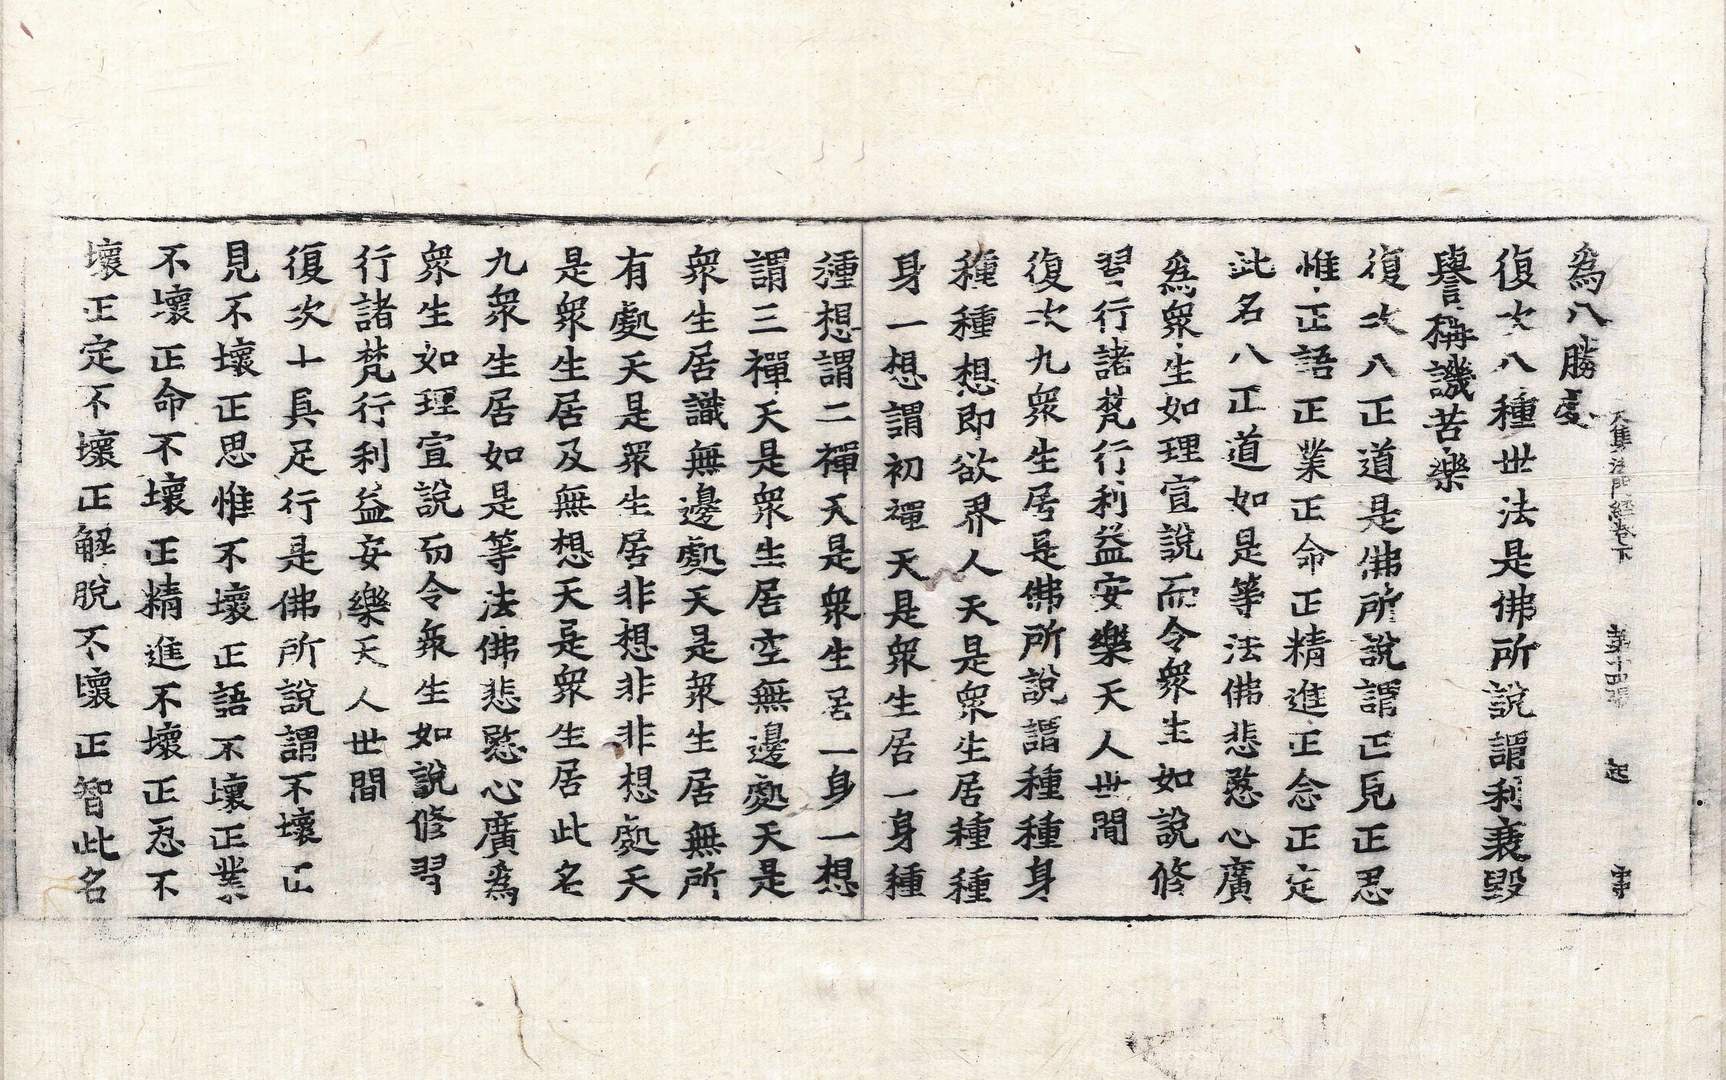 大集法門經卷下 第十四張 起
為八勝處
復次八種世法是佛所說謂利衰毀
譽稱譏苦樂
復次八正道是佛所說謂正見正思
惟正語正業正命正精進正念正定
此名八正道如是等法佛悲愍心廣
為衆生如理宣說而令衆生如說修
習行諸梵行利益安樂天人世間
復次九衆生居是佛所說謂種種身
種種想即欲界人天是衆生居種種
身一想謂初禪天是衆生居一身種
種想謂二禪天是衆生居一身一想
謂三禪天是衆生居空無邊處天是
衆生居識無邊處天是衆生居無所
有處天是衆生居非想非非想處天
是衆生居及無想天是衆生居此名
九衆生居如是等法佛悲愍心廣為
衆生如理宣說而令衆生如說修習
行諸梵行利益安樂天人世間
復次十具足行是佛所說謂不壞正
見不壞正思惟不壞正語不壞正業
不壞正命不壞正精進不壞正念不
壞正定不壞正解脫不壞正智此名